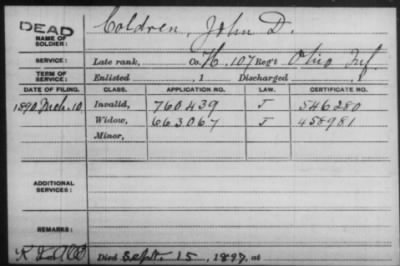 DEAD
NAME OF SOLDIER: Coldren, John D.
SERVICE: Late rank, Co. H, 107 Reg't Ohio Inf.
TERM OF SERVICE: Enlisted , 1 Discharged , 1
DATE OF FILING. CLASS. APPLICATION NO. LAW. CERTIFICATE NO.
1890 Mch. 10. Invalid, 760439 J 546280
Widow, 663067 J 458981
Minor,
ADDITIONAL SERVICES:
REMARKS:
Died Sept. 15, 1897, at